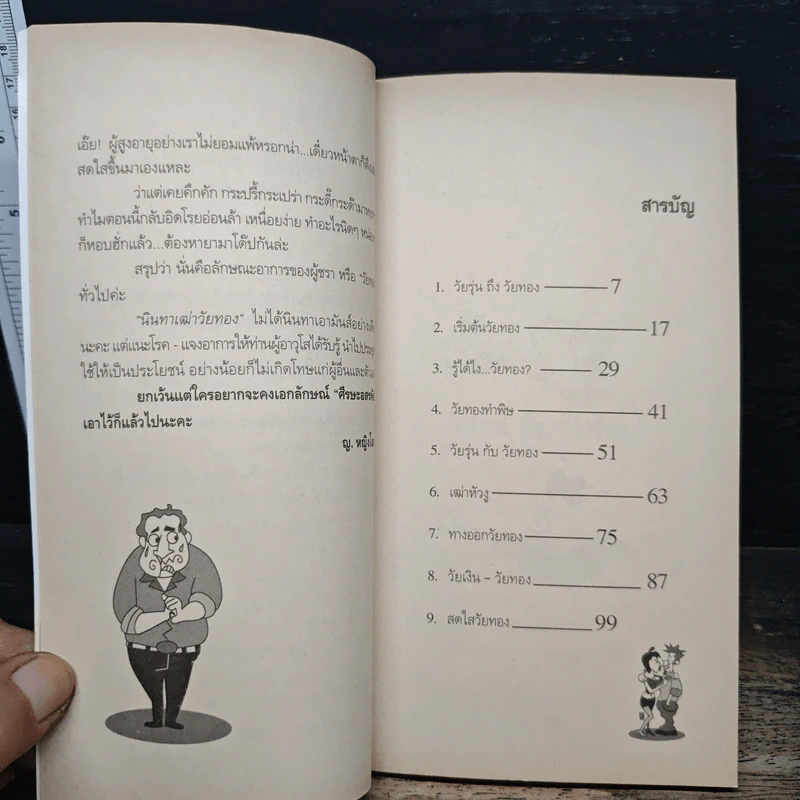 เอ๊ย! ผู้สูงอายุอย่างเราไม่ยอมแพ้หรอกน่า...เดี๋ยวหน้าตาก็
สดใสขึ้นมาเองแหละ
ว่าแต่เคยคึกคัก กระปรี้กระเปร่า กระดี๊กระด๊ามา
ทำไมตอนนี้กลับอิดโรยอ่อนล้า เหนื่อยง่าย ทำอะไรนิดๆ
ก็หอบฮั่กแล้ว...ต้องหายามาโด๊ปกันล่ะ
สรุปว่า นั่นคือลักษณะอาการของผู้ชรา หรือ
ทั่วไปค่ะ
"นินทาเฒ่าวัยทอง" ไม่ได้นินทาเอามันส์อย่าง
นะคะ แต่แนะโรค - แจงอาการให้ท่านผู้อาวุโสได้รับรู้ นำไป
ใช้ให้เป็นประโยชน์ อย่างน้อยก็ไม่เกิดโทษแก่ผู้อื่นและ
ยกเว้นแต่ใครอยากจะคงเอกลักษณ์
เอาไว้ก็แล้วไปนะคะ
ญ.
สารบัญ
1. วัยรุ่น ถึง วัยทอง 7
2. เริ่มต้นวัยทอง 17
3. รู้ได้ไง...วัยทอง? 29
4. วัยทองทำพิษ 41
5. วัยรุ่น กับ วัยทอง 51
6. เฒ่าหัวงู 63
7. ทางออกวัยทอง 75
8. วัยเงิน - วัยทอง 87
9. สดใสวัยทอง 99